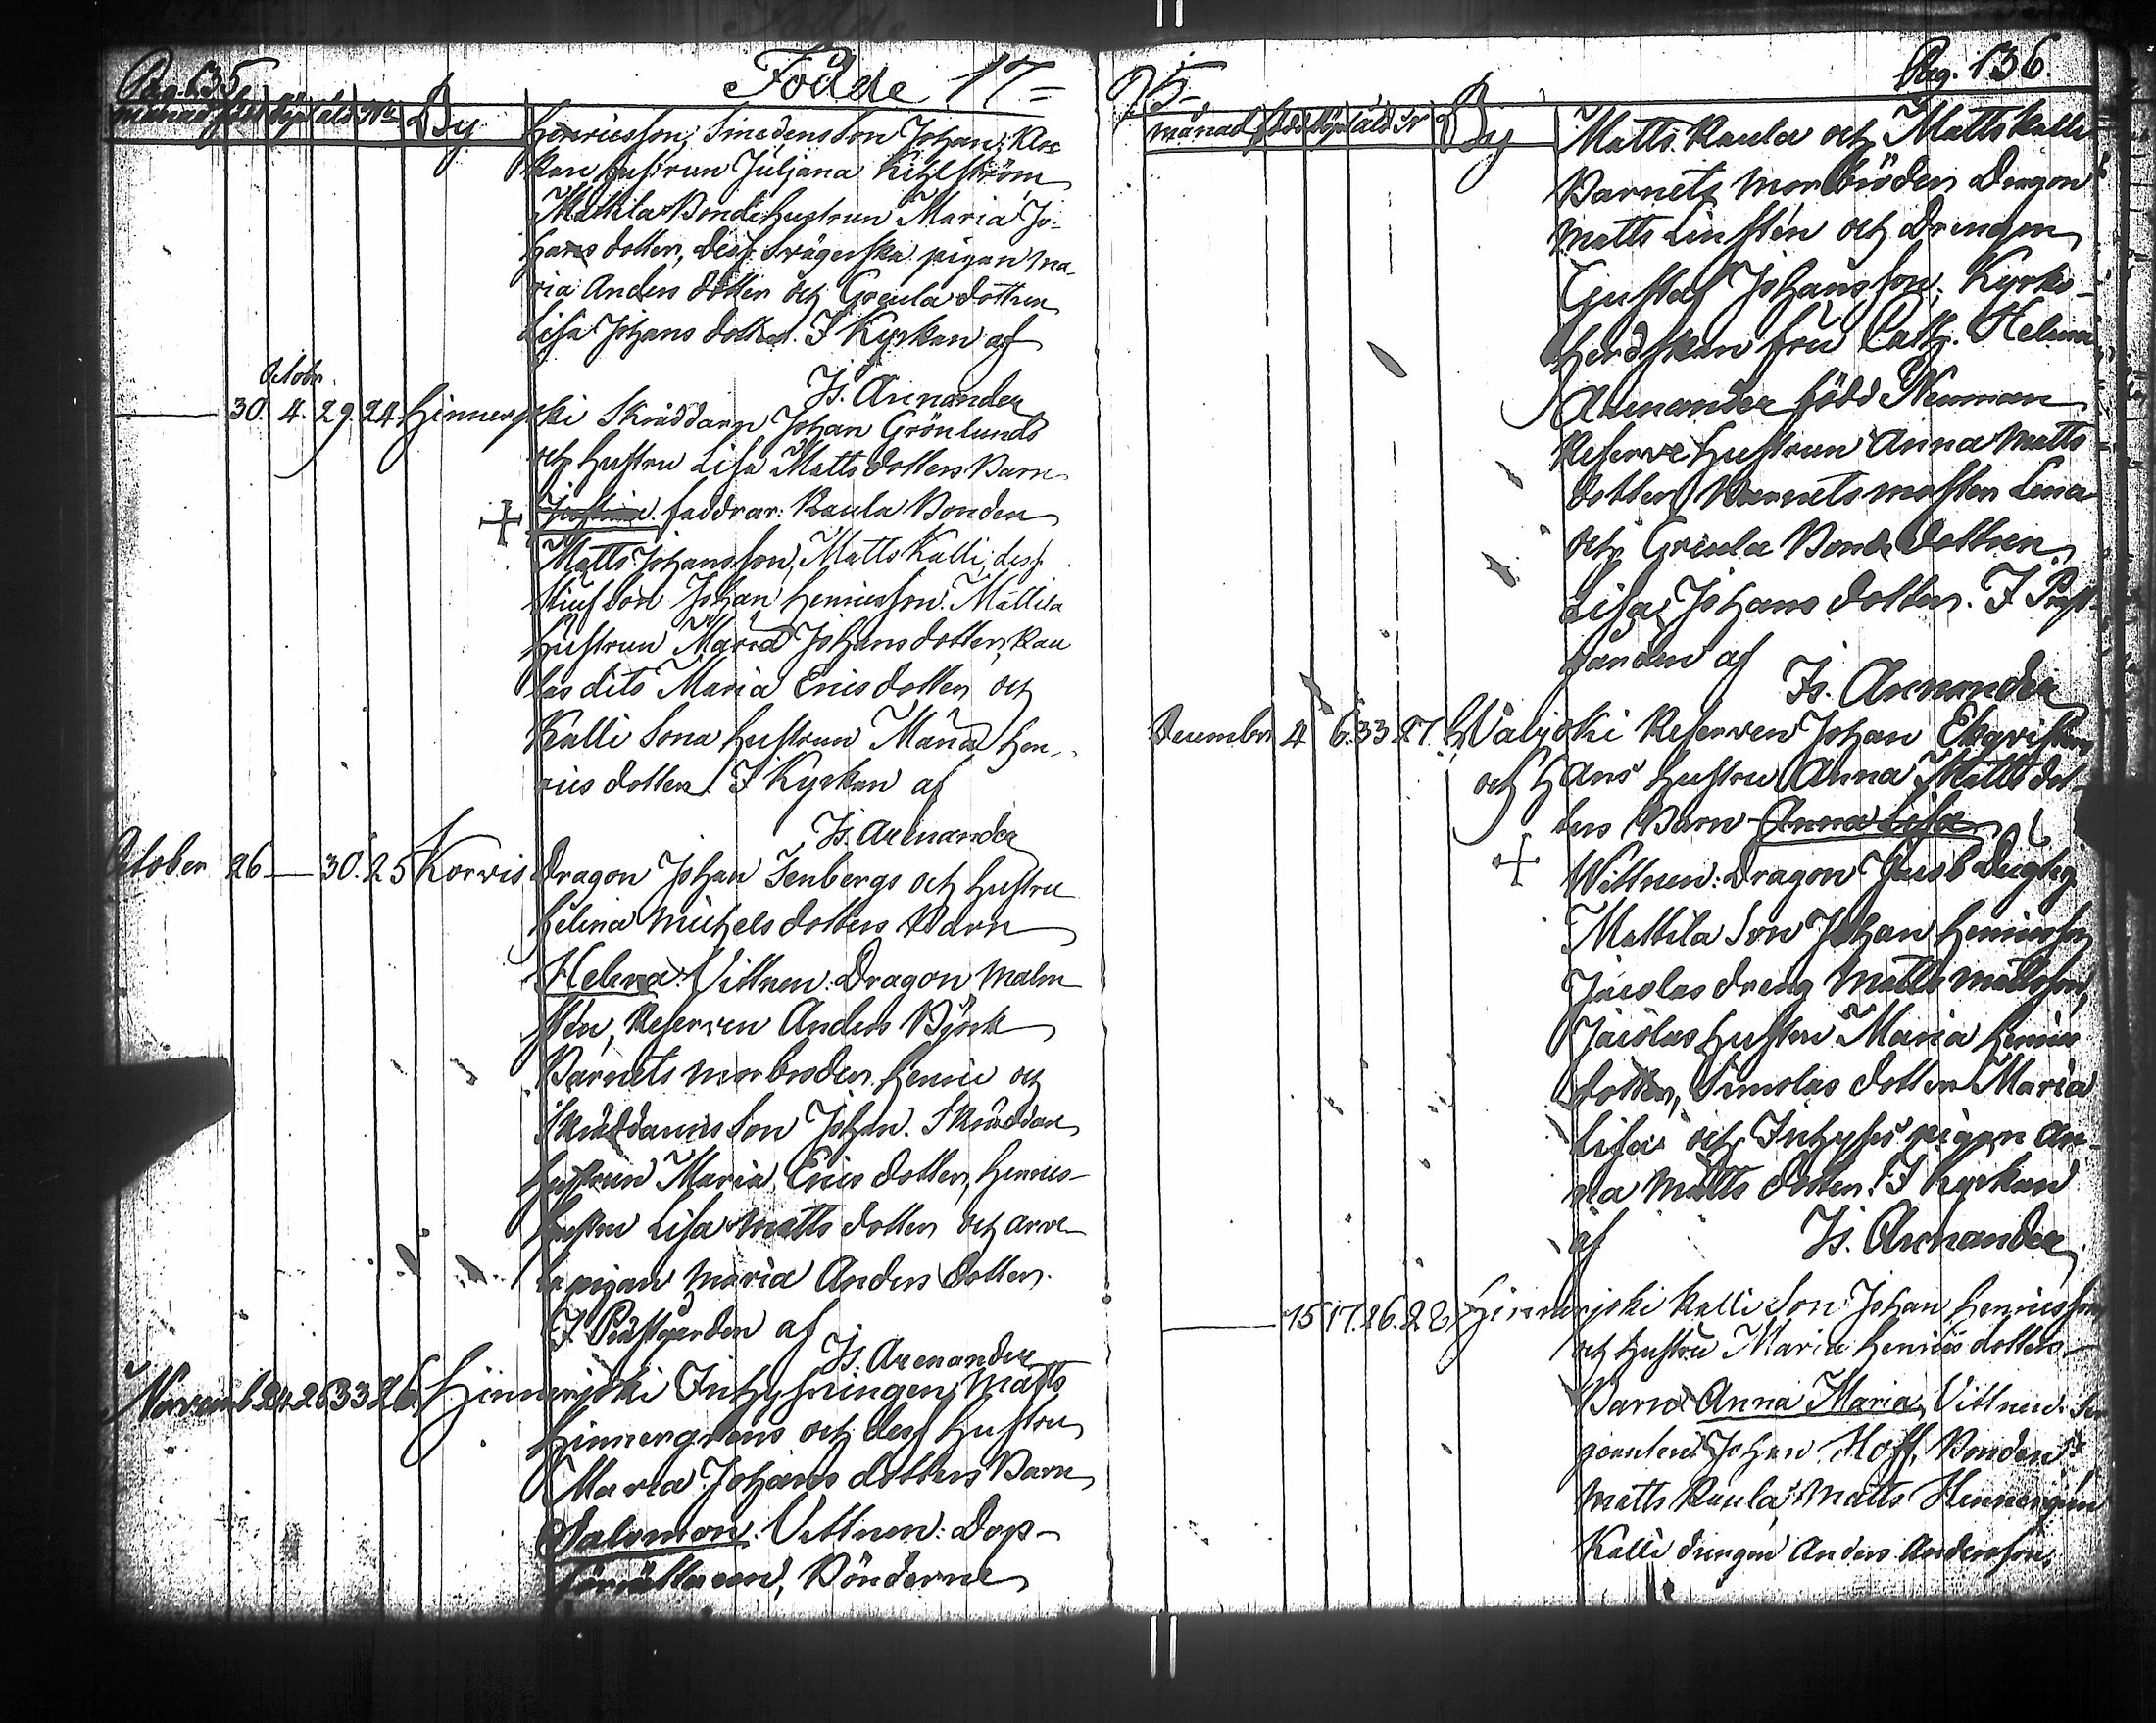 Pag. 135
Födde 17=
månad föd döpt åld No By
Henricsson, Smedens Son Johan; Kloc
kare hustrun Juljana Kihlström
Mattila Bondehustrun Maria Jo-
hans dotter, dess Svägerska pigan Ma-
ria Anders dotter och Greula dottren
Lisa Johans dotter. I Kyrkan af
Is. Arenander
October
30. 4. 29. 24. Hinnerjoki Skräddarn Johan Grönlunds
och hustru Lisa Matts dotters Barn
faddrar: Raula Bonden
Matts Johansson, Matts Kalli, dess
Stiufson Johan Henricsson. Mattila
hustrun Maria Johansdotter, Rau
las dito Maria Erics dotter och
Kalli Sona hustrun Maria Hen-
rics dotter I Kyrkan af
Is. Arenander
October 26 30. 25 Korvis Dragon Johan Isenbergs och hustru
Helena Michels dotters Barn
Helena: Vittnen: Dragon Malm
sten, Reserven Anders Björk
Barnets morbroder Henric och
Skräddarens Son Johan. Skräddare
hustrun Maria Erics dotter, Henrics
hustru Lisa Matts dotter och
pigan Maria Anders dotter.
I Prästgården af
Is. Arenander
Novemb. 24. 26 33 26. Hinnerjoki Inhysningen Matts
Hinnergrens och dess hustru
Maria Johans dotters Barn
Salomon. Vittnen: Dop-
förrättaren, Bönderne
95.
Pag. 136.
månad född döpt åld Nr By
Matts Raula och Matts Kalli
Barnets morbröder Dragon
Matts Linsten och Drengen
Gustaf Johansson. Kyrko-
herdskan fru Cath. Helena
Arenander född Neuman
Reserve hustrun Anna Matts
dotter Barnets moster Lena
och Greula Bonde dottren
Lisa Johans dotter. I Präst-
gården af
Is. Arenander
December 4 6. 33 27. Waljoki Reserven Johan Ekqvists
och hans hustru Anna Matts dot-
ters Barn Anna Lisa
Wittnen: Dragon Jacob Dugtig
Mattila Son Johan Henricsson
Jacolas dreng Matts Mattsson,
Jacolas hustru Maria Henrics
dotter, Simolas dotter Maria
Lisa och Inhyses pigan An-
na Matts dotter. I Kyrkan
af Is. Arenander
15 17. 26. 28 Hinnerjoki Kalli Son Johan Henricsson
och hustru Maria Henrics dotters
Barn Anna Maria, Vittnen: Ser
geanten Johan Hoff, Bonden
Matts Raula, Matts Hinnergren
Kalli drengen Anders Andersson,